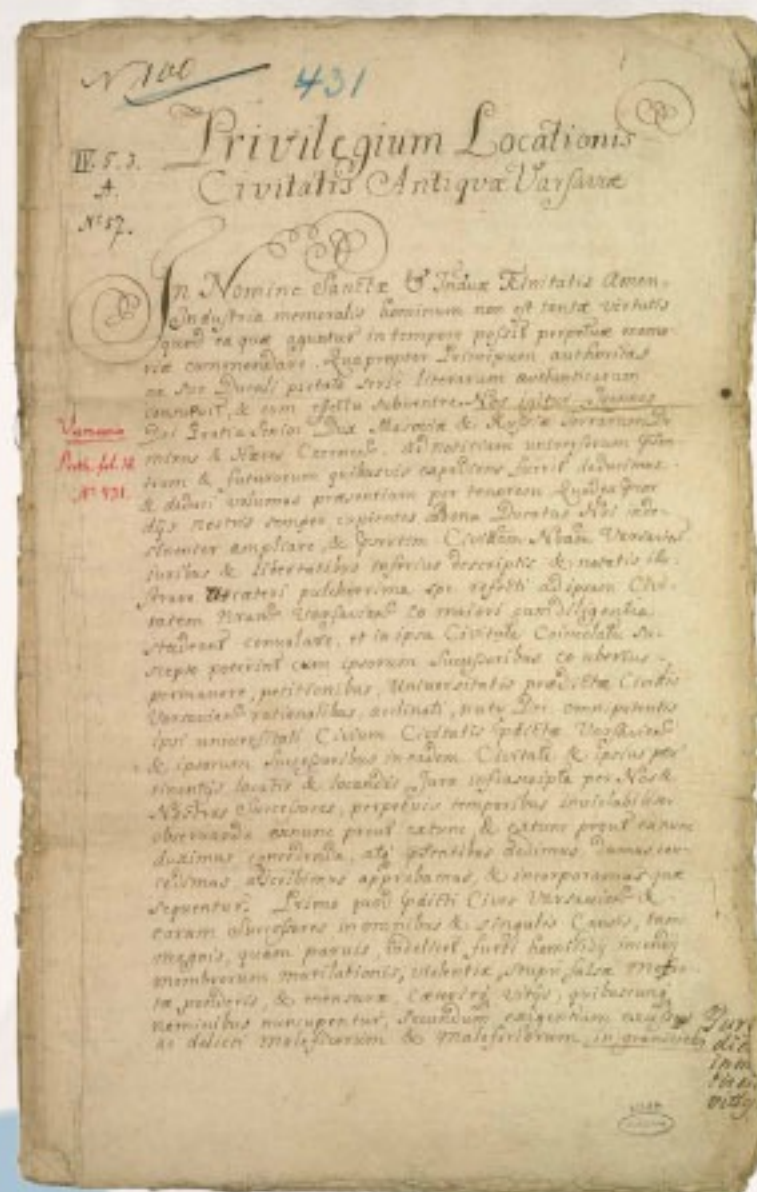 N 100
431
Privilegium Locationis
Civitatis Antiquæ Varsaviæ
IV. 5. 3.
A.
N° 57.
In Nomine Sanctæ & Induæ Trinitatis Amen.
Industria memoralis hominum non est tantæ virtutis
quod ea quæ aguntur in tempore possit perpetuæ memo-
riæ commendare. Quapropter Principum authoritas
ex sue Ducali pietate serie literarum authenticarum
consuevit, & cum effectu subvenire. Nos igitur Joannes
Dei Gratia Senior Dux Masoviæ & Russiæ Terrarum Do-
minus & Hæres Ad notitiam universorum
& futurorum quibusvis expediens fuerit deducimus
& deduci volumus præsentium per tenorem
nostris semper cupientes Bona Ducatus Nri inde-
sinenter ampliare, & Civittem Novam Varsavien
juribus & libertatibus inferius descriptis & notatis
cæteri pulcherrima spe refecti ad ipsam Civi-
tatem Nram Varsavien eo maiori cum diligentia
studeant convolare, et in ipsa Civitate Su-
scepta poterint cum ipsorum Successoribus eo uberius
permanere, petitionibus, Universitatis prædictæ Civittis
Varsavien rationalibus, nutu Dei omnipotentis
ipsi universitati Civium Civitatis Varsavien
& ipsorum Successoribus in eadem Civitate & ipsius per-
tinentijs locatis & locandis Jura infrascripta per Nos &
Nostros Successores, perpetuis temporibus inviolabiliter
observanda exnunc prout extunc, & extunc prout exnunc
duximus concedenda, dedimus damus con-
cessimus, adscribimus approbamus, & incorporamus quæ
sequentur. Primo quod Cives Varsavien &
earum Successores in omnibus & singulis Causis, tam
magnis, quam parvis, videlicet furti homicidij incendij
membrorum mutilationis, violentiæ, stupri falsæ
ponderis, & mensuræ, vitijs, quibuscunq
nominibus nuncupentur, secundum exigentiam
ac delicti maleficorum & maleficiorum, in
Varsavia
fol.
N° 431.